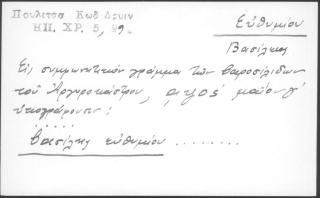 Πουλίτσα Κωδ Δρυιν
ΗΠ. ΧΡ. 5, 89.
Εὐθυμίου
Βασίλης
Εἰς συμφωνητικὸν γράμμα τῶν βαροσιλίδων
τοῦ Ἀργυροκάστρου, αψος μαΐου γ'
ὑπογράφουν:
......
Βασίλης εὐθυμίου ........